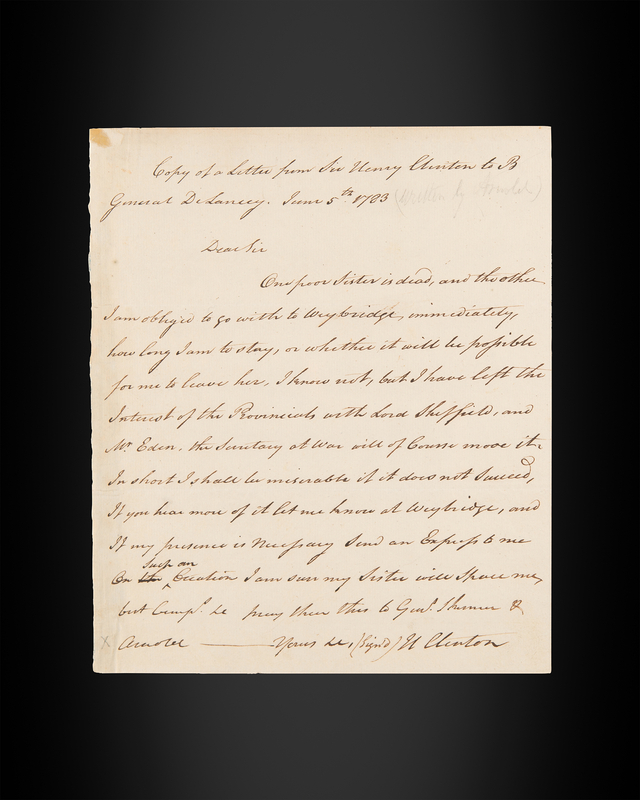 Copy of a Letter from Sir Henry Clinton to B
General DeLancey. June 5th 1783 (Written by Arnold)
Dear Sir
One poor Sister is dead, and the other
I am obliged to go with to Weybridge, immediately,
how long I am to stay, or whether it will be possible
for me to leave her, I know not, but I have left the
Interest of the Provincials with Lord Sheffield, and
Mr Eden, the Secretary at War will of Course move it.
In short I shall be miserable if it does not Succeed,
If you hear more of it let me know at Weybridge, and
If my presence is Necessary Send an Express to me
Such an
On Occasion I am sure my Sister will Spare me,
but Compts. &c pray shew this to Genl. Skinner &
Arnold Yours &c, (Sign'd) H Clinton